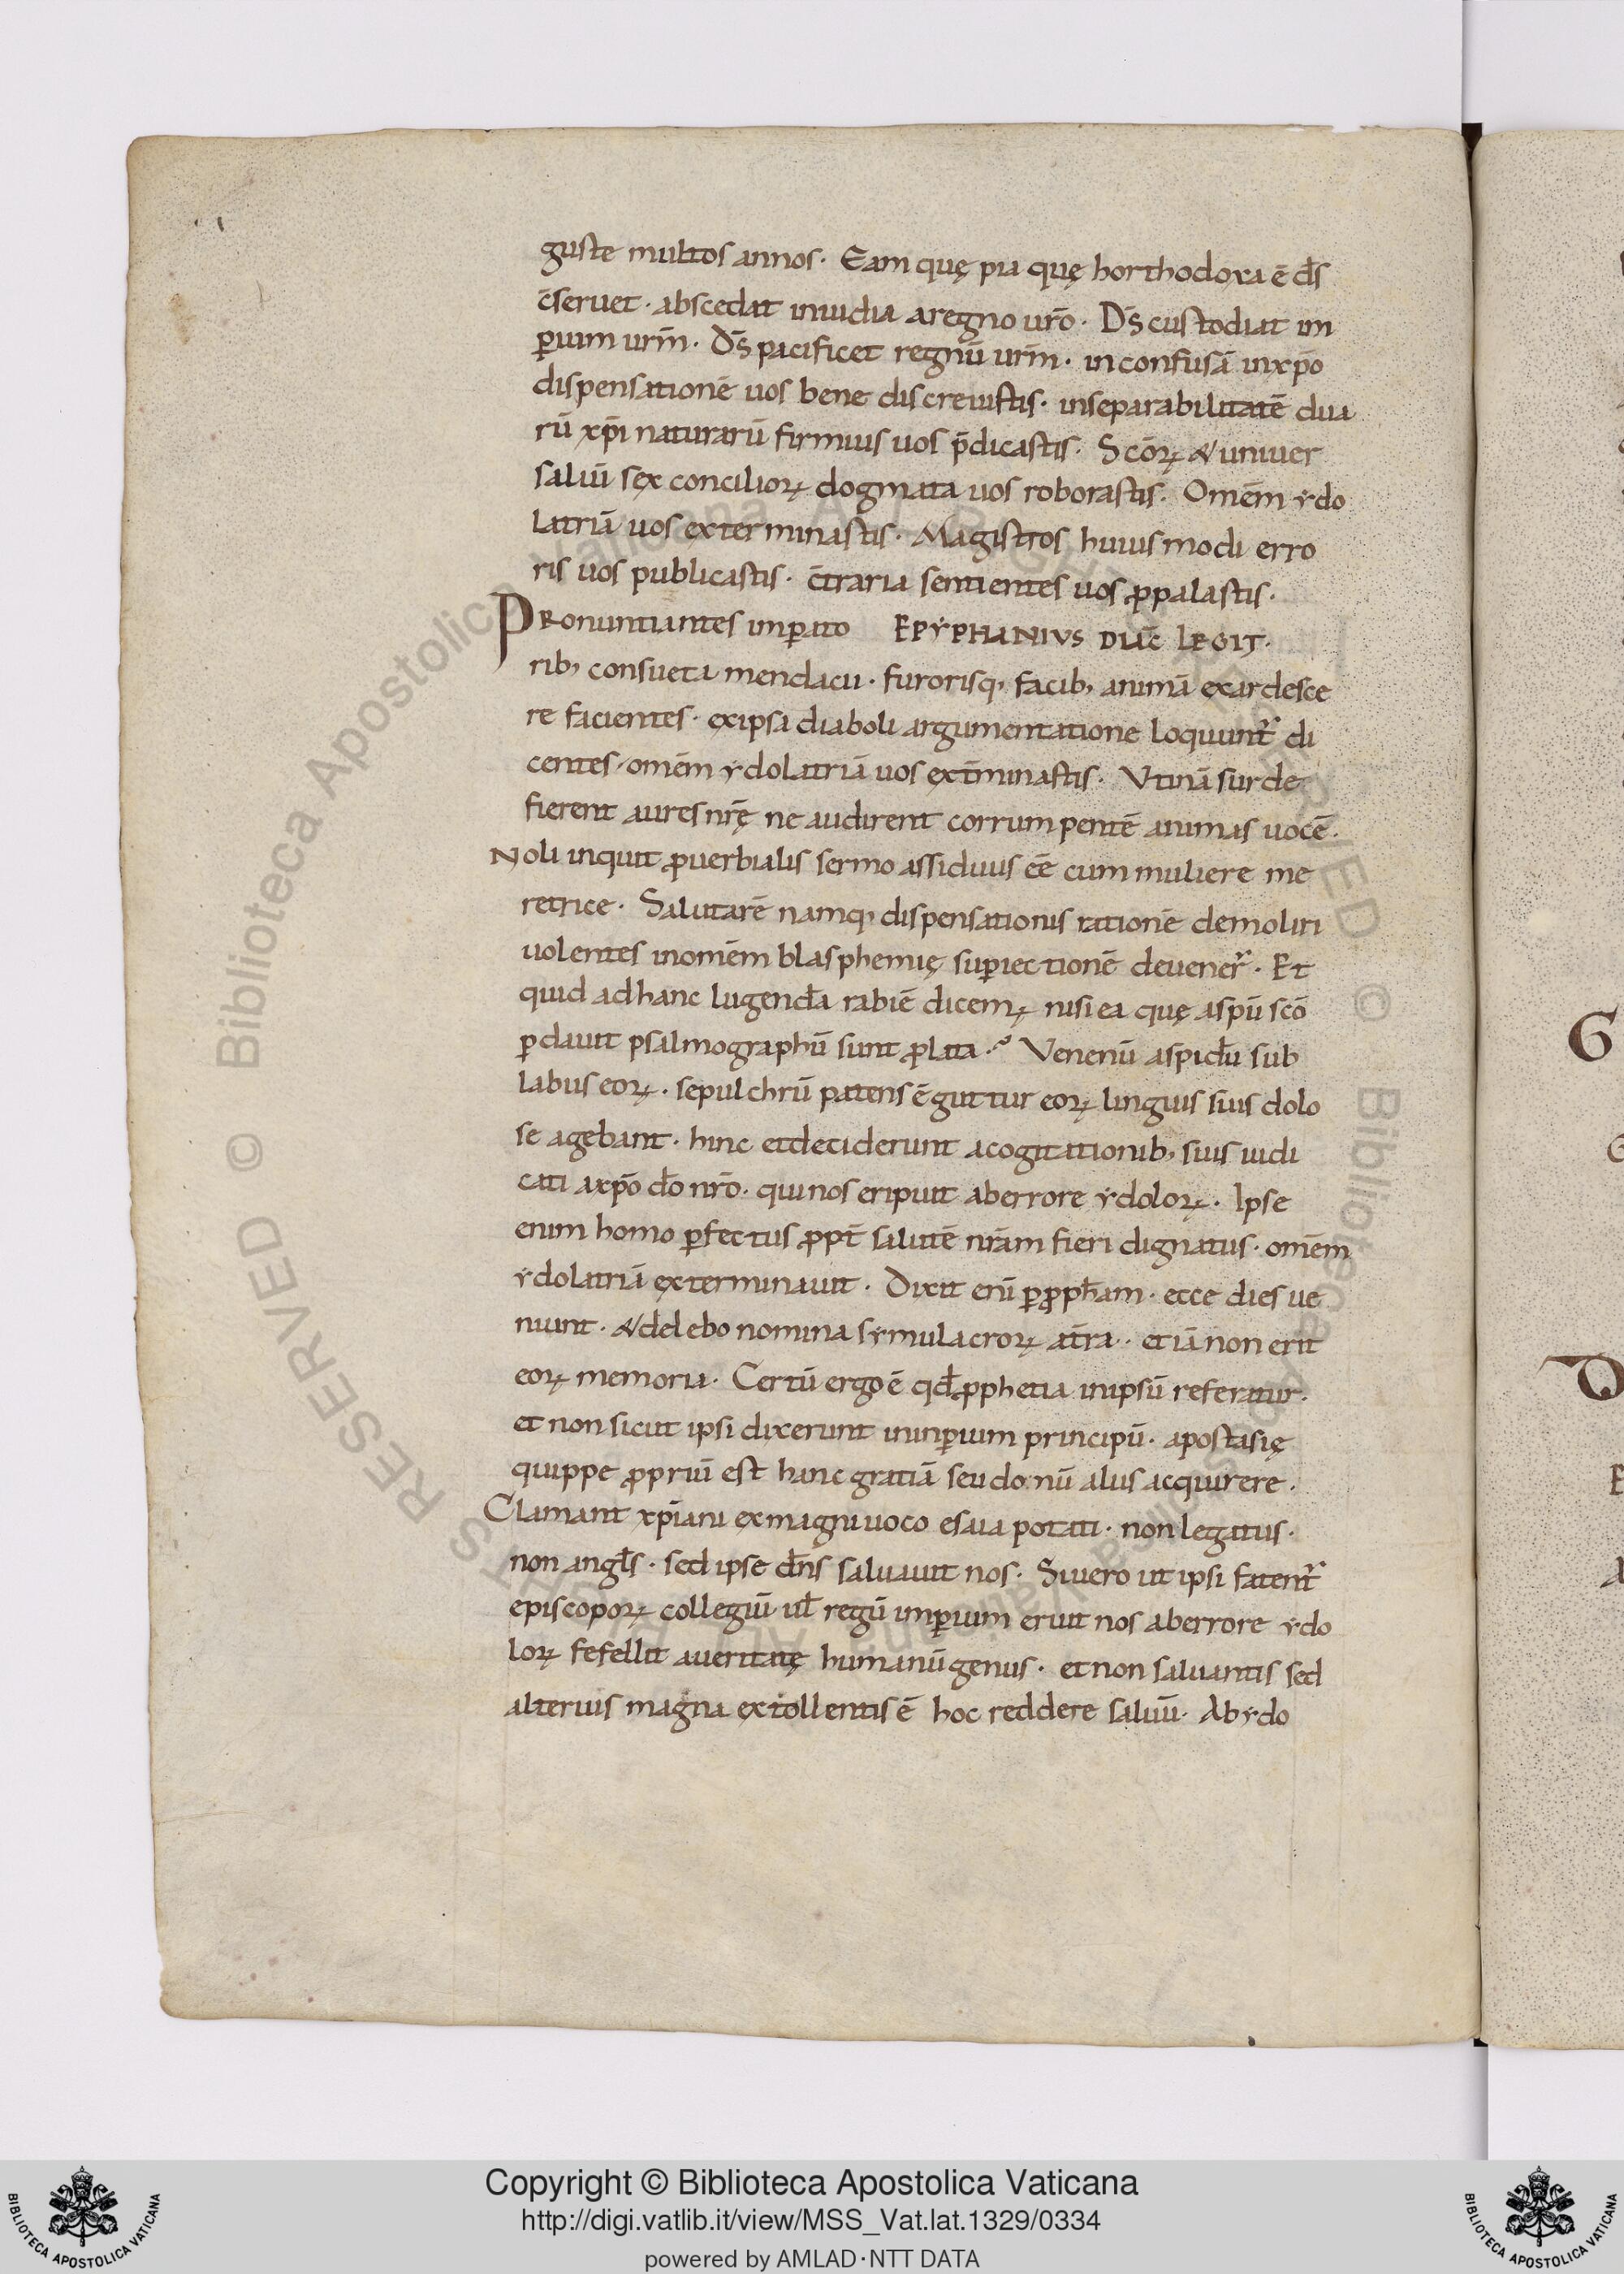 guste multos annos· Eam quę pia quę horthodoxa ē d̄s
c̄seruet· abscedat inuidia aregno ur̄o· D̄s custodiat im
ꝑium urm̄· D̄s pacificet regnū urm̄· inconfusā inxp̄o
dispensationē uos bene discreuistis· inseparabilitatē dua
rū xp̄i naturarū firmius uos p̄dicastis· Scōꝝ & uniuer
saliū sex concilioꝝ dogmata uos roborastis· Omēm ydo
latriā uos exterminastis· Magistros huiusmodi erro
ris uos publicastis· c̄traria sentientes uos ꝓpalastis·
Pronuntiantes imꝑato EPYPHANIUS DIAC̄ LEGIT·
rib; consueta mendacii· furorisq; facib; animā exardesce
re facientes· exipsa diaboli argumentatione loquunt̄ di
centes· omēm ydolatriā uos ext̄minastis· Utinā surde
fierent aures nr̄ę ne audirent corrumpentē animas uocē·
Noli inquit ꝓuerbialis sermo assiduus eē cum muliere me
retrice· Salutarē namq; dispensationis rationē demoliri
uolentes inomēm blasphemię suꝑiectionē deuener̄· Et
quid adhanc lugendā rabiē dicemꝰ nisi ea quę aspū scō
ꝑ dauit psalmographū sunt ꝓlata· Venenū aspidū sub
labiis eoꝝ· sepulchrū patens ē guttur eoꝝ linguis suis dolo
se agebant· hinc etdeciderunt acogitationib; suis iudi
cati axp̄o dō nr̄o· quinos eripuit aberrore ydoloꝝ· Ipse
enim homo ꝑfectus ꝓpt̄ salutē nr̄am fieri dignatus· omēm
ydolatriā exterminauit· Dixit enī ꝑ ꝓph̄am· ecce dies ue
niunt· & delebo nomina symulacroꝝ at̄ra·· et iā non erit
eoꝝ memoria· Certū ergo ē qd̄ ꝓphetia inipsū referatur·
et non sicut ipsi dixerunt inimꝑium principū· apostasię
quippe ꝓpriū est hanc gratiā seu donū aliis acquirere·
Clamant xp̄iani exmagniuoco esaia potati· non legatus·
non angl̄s· sed ipse dn̄s saluauit nos· Siuero ut ipsi fatent̄
episcopoꝝ collegiū ul̄ regū imꝑium eruit nos aberrore ydo
loꝝ fefellit aueritatę humanū genus· et non saluantis sed
alterius magna extollentis ē hoc reddere saluū· Abydo
G
Copyright © Biblioteca Apostolica Vaticana
http://digi.vatlib.it/view/MSS_Vat.lat.1329/0334
powered by AMLAD·NTT DATA
BIBLIOTECA APOSTOLICA VATICANA
BIBLIOTECA APOSTOLICA VATICANA